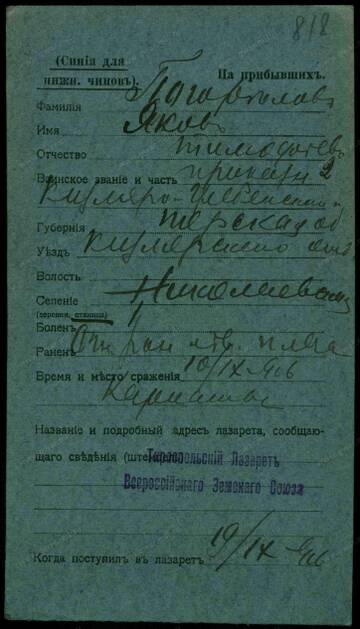 818
(Синія для нижн. чиновъ). На прибывшихъ.
Фамилія
Имя Яковъ
Отчество Тимофѣевъ
Воинское званіе и часть
Кизляро-Гребенский
Губернія Терская об
Уѣздъ Кизлярского
Волость
Селеніе Николаевская
(деревня, станица)
Боленъ
Раненъ Огн ран лѣв. плеча
Время и мѣсто сраженія 10/IX-906
Карпаты
Названіе и подробный адресъ лазарета, сообщаю-
щаго свѣдѣнія
Тарнопольскій Лазаретъ
Всероссійскаго Земскаго Союза
Когда поступилъ въ лазаретъ 19/IX-906